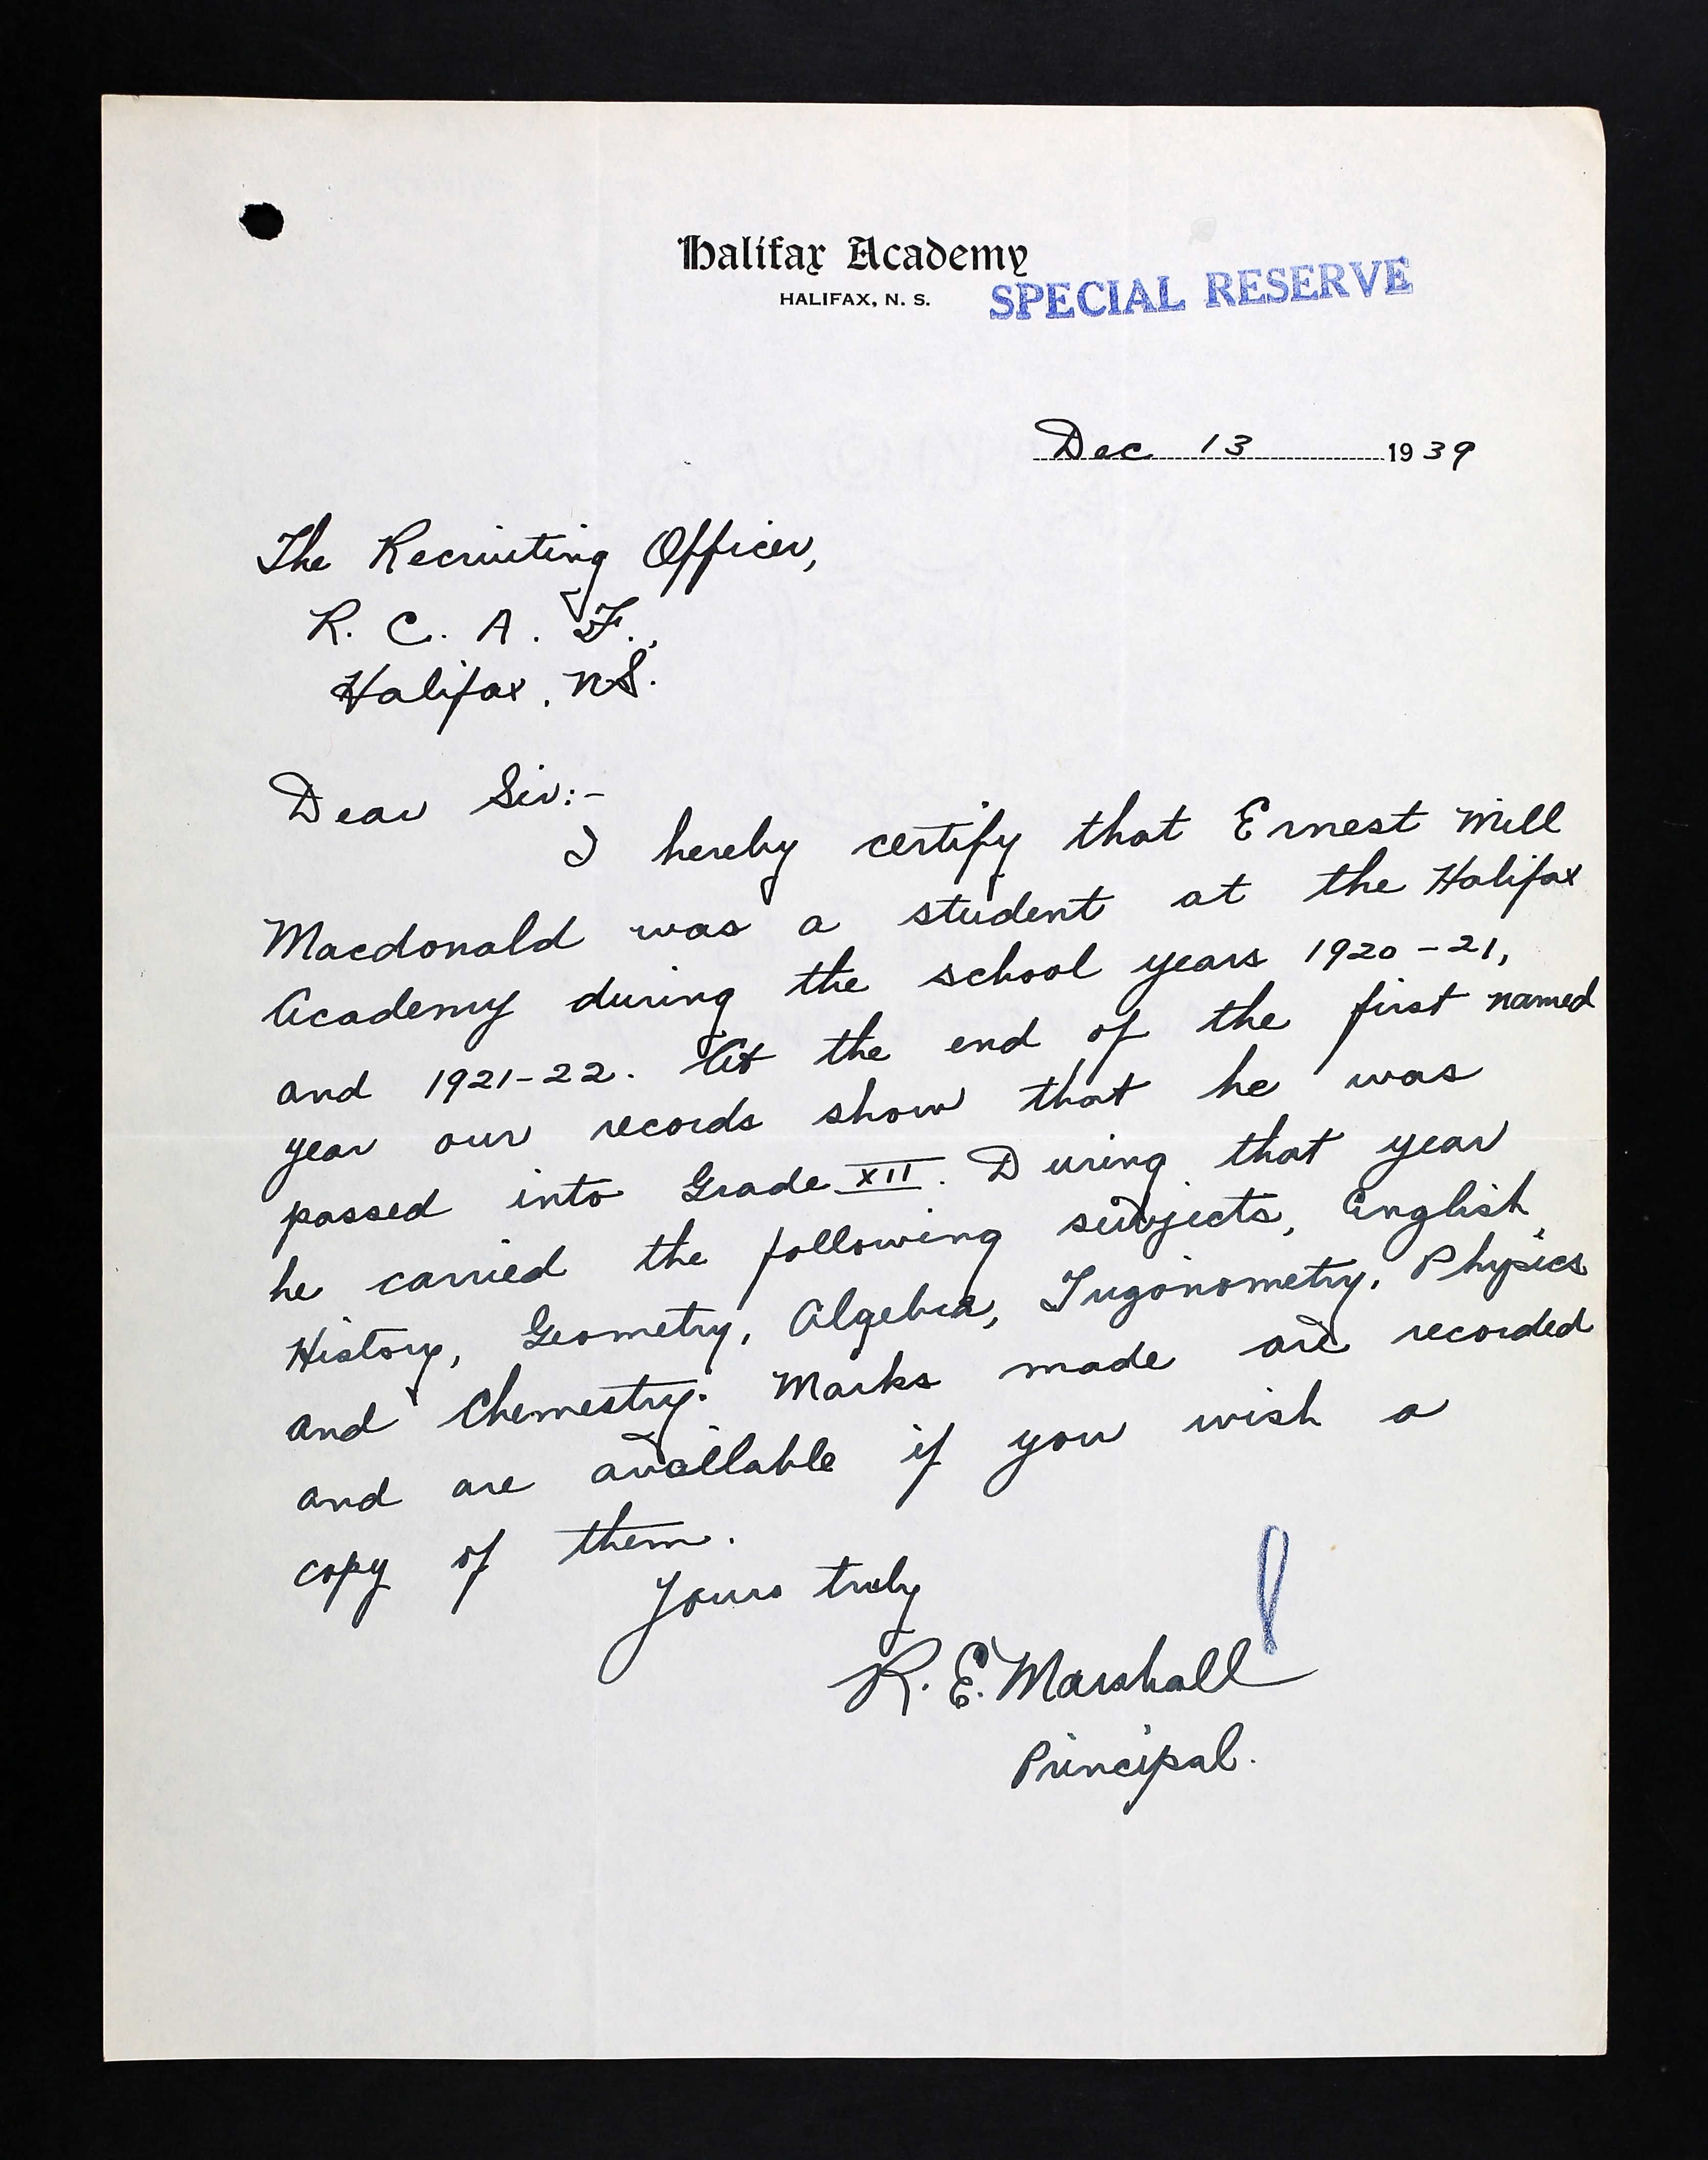 Halifax Academy
HALIFAX, N. S.
SPECIAL RESERVE
Dec 13 1939
The Recruiting Officer,
R. C. A. F.,
Halifax, N.S.
Dear Sir:-
I hereby certify that Ernest Mill
Macdonald was a student at the Halifax
Academy during the school years 1920-21,
and 1921-22. At the end of the first named
year our records show that he was
passed into Grade XII. During that year
he carried the following subjects, English,
History, Geometry, Algebra, Trigonometry, Physics
and Chemestry. Marks made are recorded
and are availlable if you wish a
copy of them.
Yours truly
R. E. Marshall
Principal.